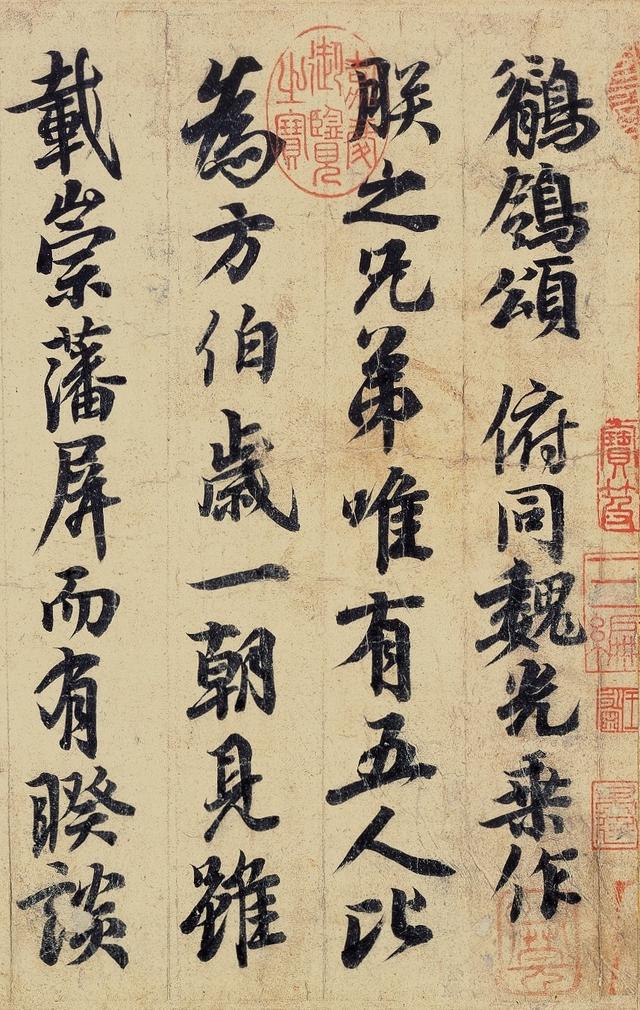 鶺鴒頌 俯同魏光乘作
朕之兄弟唯有五人比
為方伯歲一朝見雖
載崇藩屏而有睽談
嘉慶御覽之寶